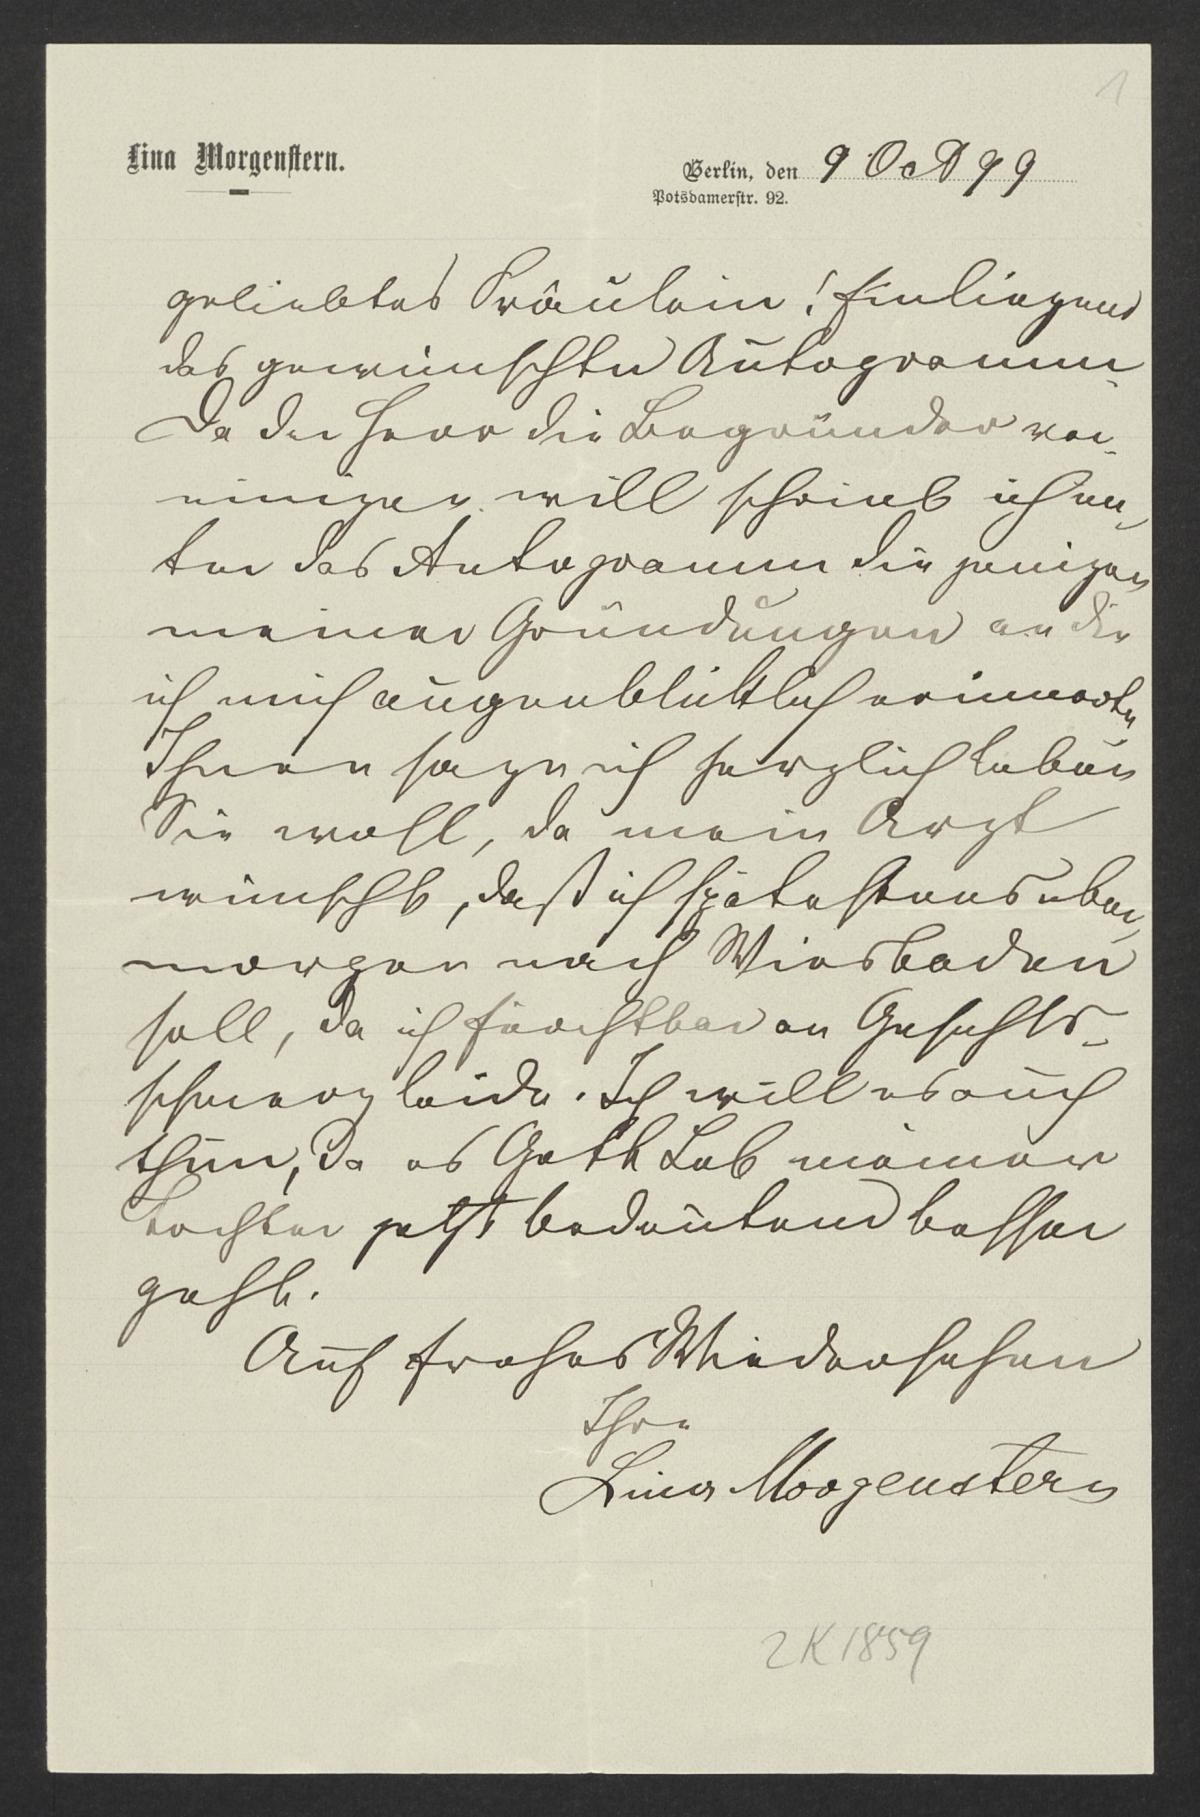 1
Lina Morgenstern.
Berlin, den 9 Oct 99
Potsdamerstr. 92.
geliebtes Fräulein! Einliegend
das gewünschte Autogramm
Da der Herr die Begründer ver-
einigen will schrieb ich un-
ter das Autogramm die jenigen
meiner Gründungen an die
ich mich augenblicklich erinnerte
Ihnen sage ich herzlich leben
Sie wohl, da mein Arzt
wünscht, daß ich spätestens über-
morgen nach Wiesbaden
soll, da ich furchtbar an Gesichts-
schmerz leide. Ich will es auch
thun, da es Gott Lob meiner
Tochter jetzt bedeutend besser
geht.
Auf frohes Wiedersehen
Ihre
Lina Morgenstern
2K1859